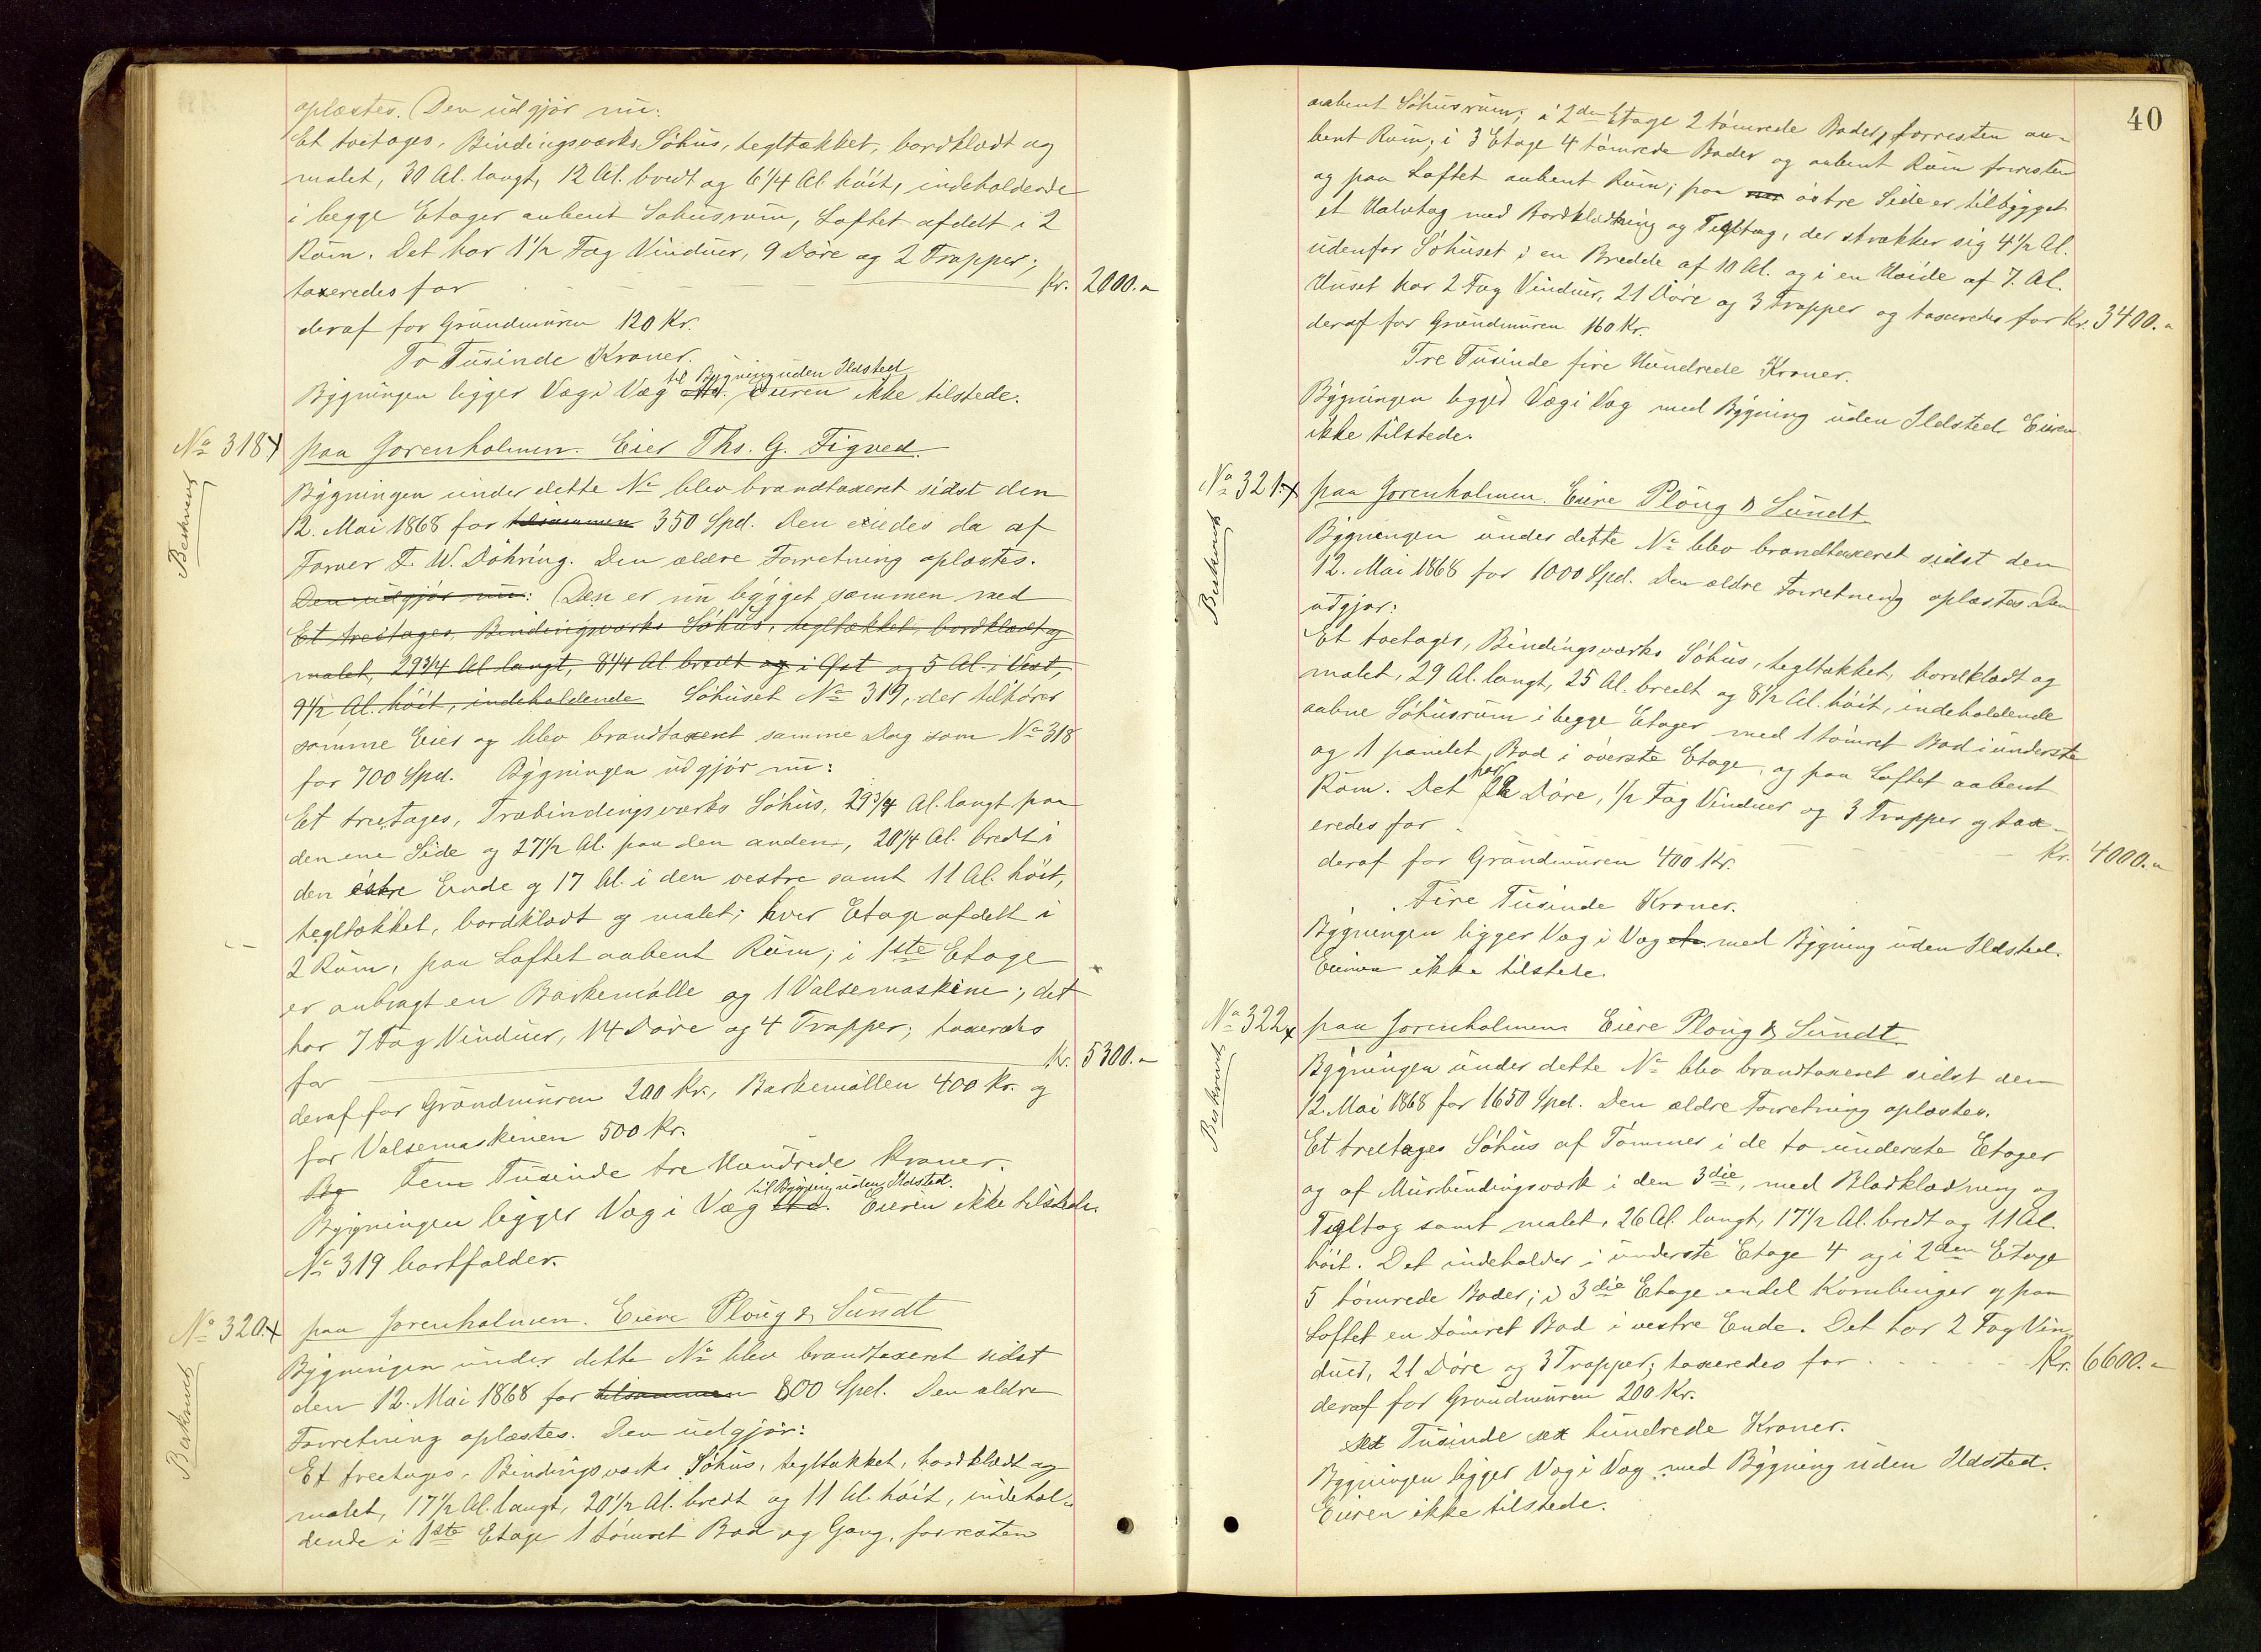 oplæstes. Den udgjör nu:
Et toetages, Bindingsværks Söhus, tegltækket, bordklædt og
malet, 30 Al. langt, 12 Al. bredt og 6 1/4 Al. höit, indeholdende
i begge Etager aabent Söhusrum, Loftet afdelt i 2
Rum. Det har 1 1/2 Fag Vinduer, 9 Döre og 2 Trapper;
taxeredes for Kr. 2000.-
deraf for Grundmuren 120 Kr.
To Tusinde Kroner.
til Bygning uden Ildsted
Bygningen ligger Væg i Væg Eieren ikke tilstede.
No 318 paa Jorenholmen. Eier Ths. G. Figved.
Beskrevet
Bygningen under dette No blev brandtaxeret sidst den
12. Mai 1868 for tilsammen 350 Spd. Den eiedes da af
Farver F. W. Döhring. Den ældre Forretning oplæstes.
Den udgjör nu: Den er nu bygget sammen med
Et treetages, Bindingsværks Söhus, tegltækket, bordklædt og
malet, 29 3/4 Al langt, 8 1/4 Al bredt og i Öst og 5 Al. i Vest,
9 1/2 Al. höit, indeholdende Söhuset No 319, der tilhörer
samme Eier og blev brandtaxeret samme Dag som No 318
for 700 Spd. Bygningen udgjör nu:
Et treetages, Træbindingsværks Söhus, 29 3/4 Al. langt paa
den ene Side og 27 1/2 Al. paa den anden, 20 1/4 Al. bredt i
den östre Ende og 17 Al. i den vestre samt 11 Al. höit,
tegltækket, bordklædt og malet; hver Etage afdelt i
2 Rum, paa Loftet aabent Rum; i 1ste Etage
er anbragt en Barkemölle og 1 Valsemaskine; det
har 7 Fag Vinduer, 14 Döre og 4 Trapper; taxeredes
for Kr. 5300.-
deraf for Grundmuren 200 Kr., Barkemöllen 400 Kr. og
for Valsemaskinen 500 Kr.
Byg Fem Tusinde tre Hundrede Kroner.
til Bygning uden Ildsted.
Bygningen ligger Væg i Væg Eieren ikke tilstede.
No 319 bortfalder.
No 320. paa Jorenholmen. Eiere Ploug & Sundt
Beskrevet
Bygningen under dette No blev brandtaxeret sidst
den 12. Mai 1868 for tilsammen 800 Spd. Den ældre
Forretning oplæstes. Den udgjör:
Et treetages, Bindingsværks Söhus, tegltækket, bordklædt og
malet, 17 1/2 Al. langt, 20 1/2 Al. bredt og 11 Al. höit, indehol-
dende i 1ste Etage 1 tömret Bod og Gang, forresten
40
aabent Söhusrum; i 2den Etage 2 tömrede Boder, forresten aa-
bent Rum; i 3 Etage 4 tömrede Boder og aabent Rum forresten
og paa Loftet aabent Rum; paa östre Side er tilbygget
et Halvtag med Bordklædning og Tegltag, der strækker sig 4 1/2 Al.
udenfor Söhuset i en Bredde af 10 Al. og i en Höide af 7. Al.
Huset har 2 Fag Vinduer, 21 Döre og 3 Trapper og taxeredes for Kr. 3400.-
deraf for Grundmuren 160 Kr.
Tre Tusinde fire Hundrede Kroner.
Bygningen ligger Væg i Væg med Bygning uden Ildsted Eieren
ikke tilstede.
No 321. paa Jorenholmen. Eiere Ploug & Sundt
Beskrevet
Bygningen under dette No blev brandtaxeret sidst den
12. Mai 1868 for 1000 Spd. Den ældre Forretning oplæstes. Den
udgjör:
Et toetages, Bindingsværks Söhus, tegltækket, bordklædt og
malet, 29 Al. langt, 25 Al. bredt og 8 1/2 Al. höit, indeholdende
aabne Söhusrum i begge Etager med 1 tömret Bod i underste
og 1 panelet Bod i överste Etage, og paa Loftet aabent
Rum. Det har 22 Döre, 1/2 Fag Vinduer og 3 Trapper og tax-
eredes for Kr. 4000.-
deraf for Grundmuren 400 Kr.
Fire Tusinde Kroner.
Bygningen ligger Væg i Væg med Bygning uden Ildsted.
Eieren ikke tilstede.
No 322 paa Jorenholmen Eiere Ploug & Sundt
Beskrevet
Bygningen under dette No blev brandtaxeret sidst den
12. Mai 1868 for 1650 Spd. Den ældre Forretning oplæstes.
Et treetages Söhus af Tömmer i de to underste Etager
og af Murbindingsværk i den 3die, med Bordklædning og
Tegltag samt malet, 26 Al. langt, 17 1/2 Al. bredt og 11 Al.
höit. Det indeholder i underste Etage 4 og i 2den Etage
5 tömrede Boder; i 3die Etage endel Kornbinger og paa
Loftet en tömret Bod i vestre Ende. Det har 2 Fag Vin-
duer, 21 Döre og 3 Trapper; taxeredes for Kr. 6600.-
deraf for Grundmuren 200 Kr.
sex Tusinde sex hundrede Kroner.
Bygningen ligger Væg i Væg med Bygning uden Ildsted.
Eieren ikke tilstede.